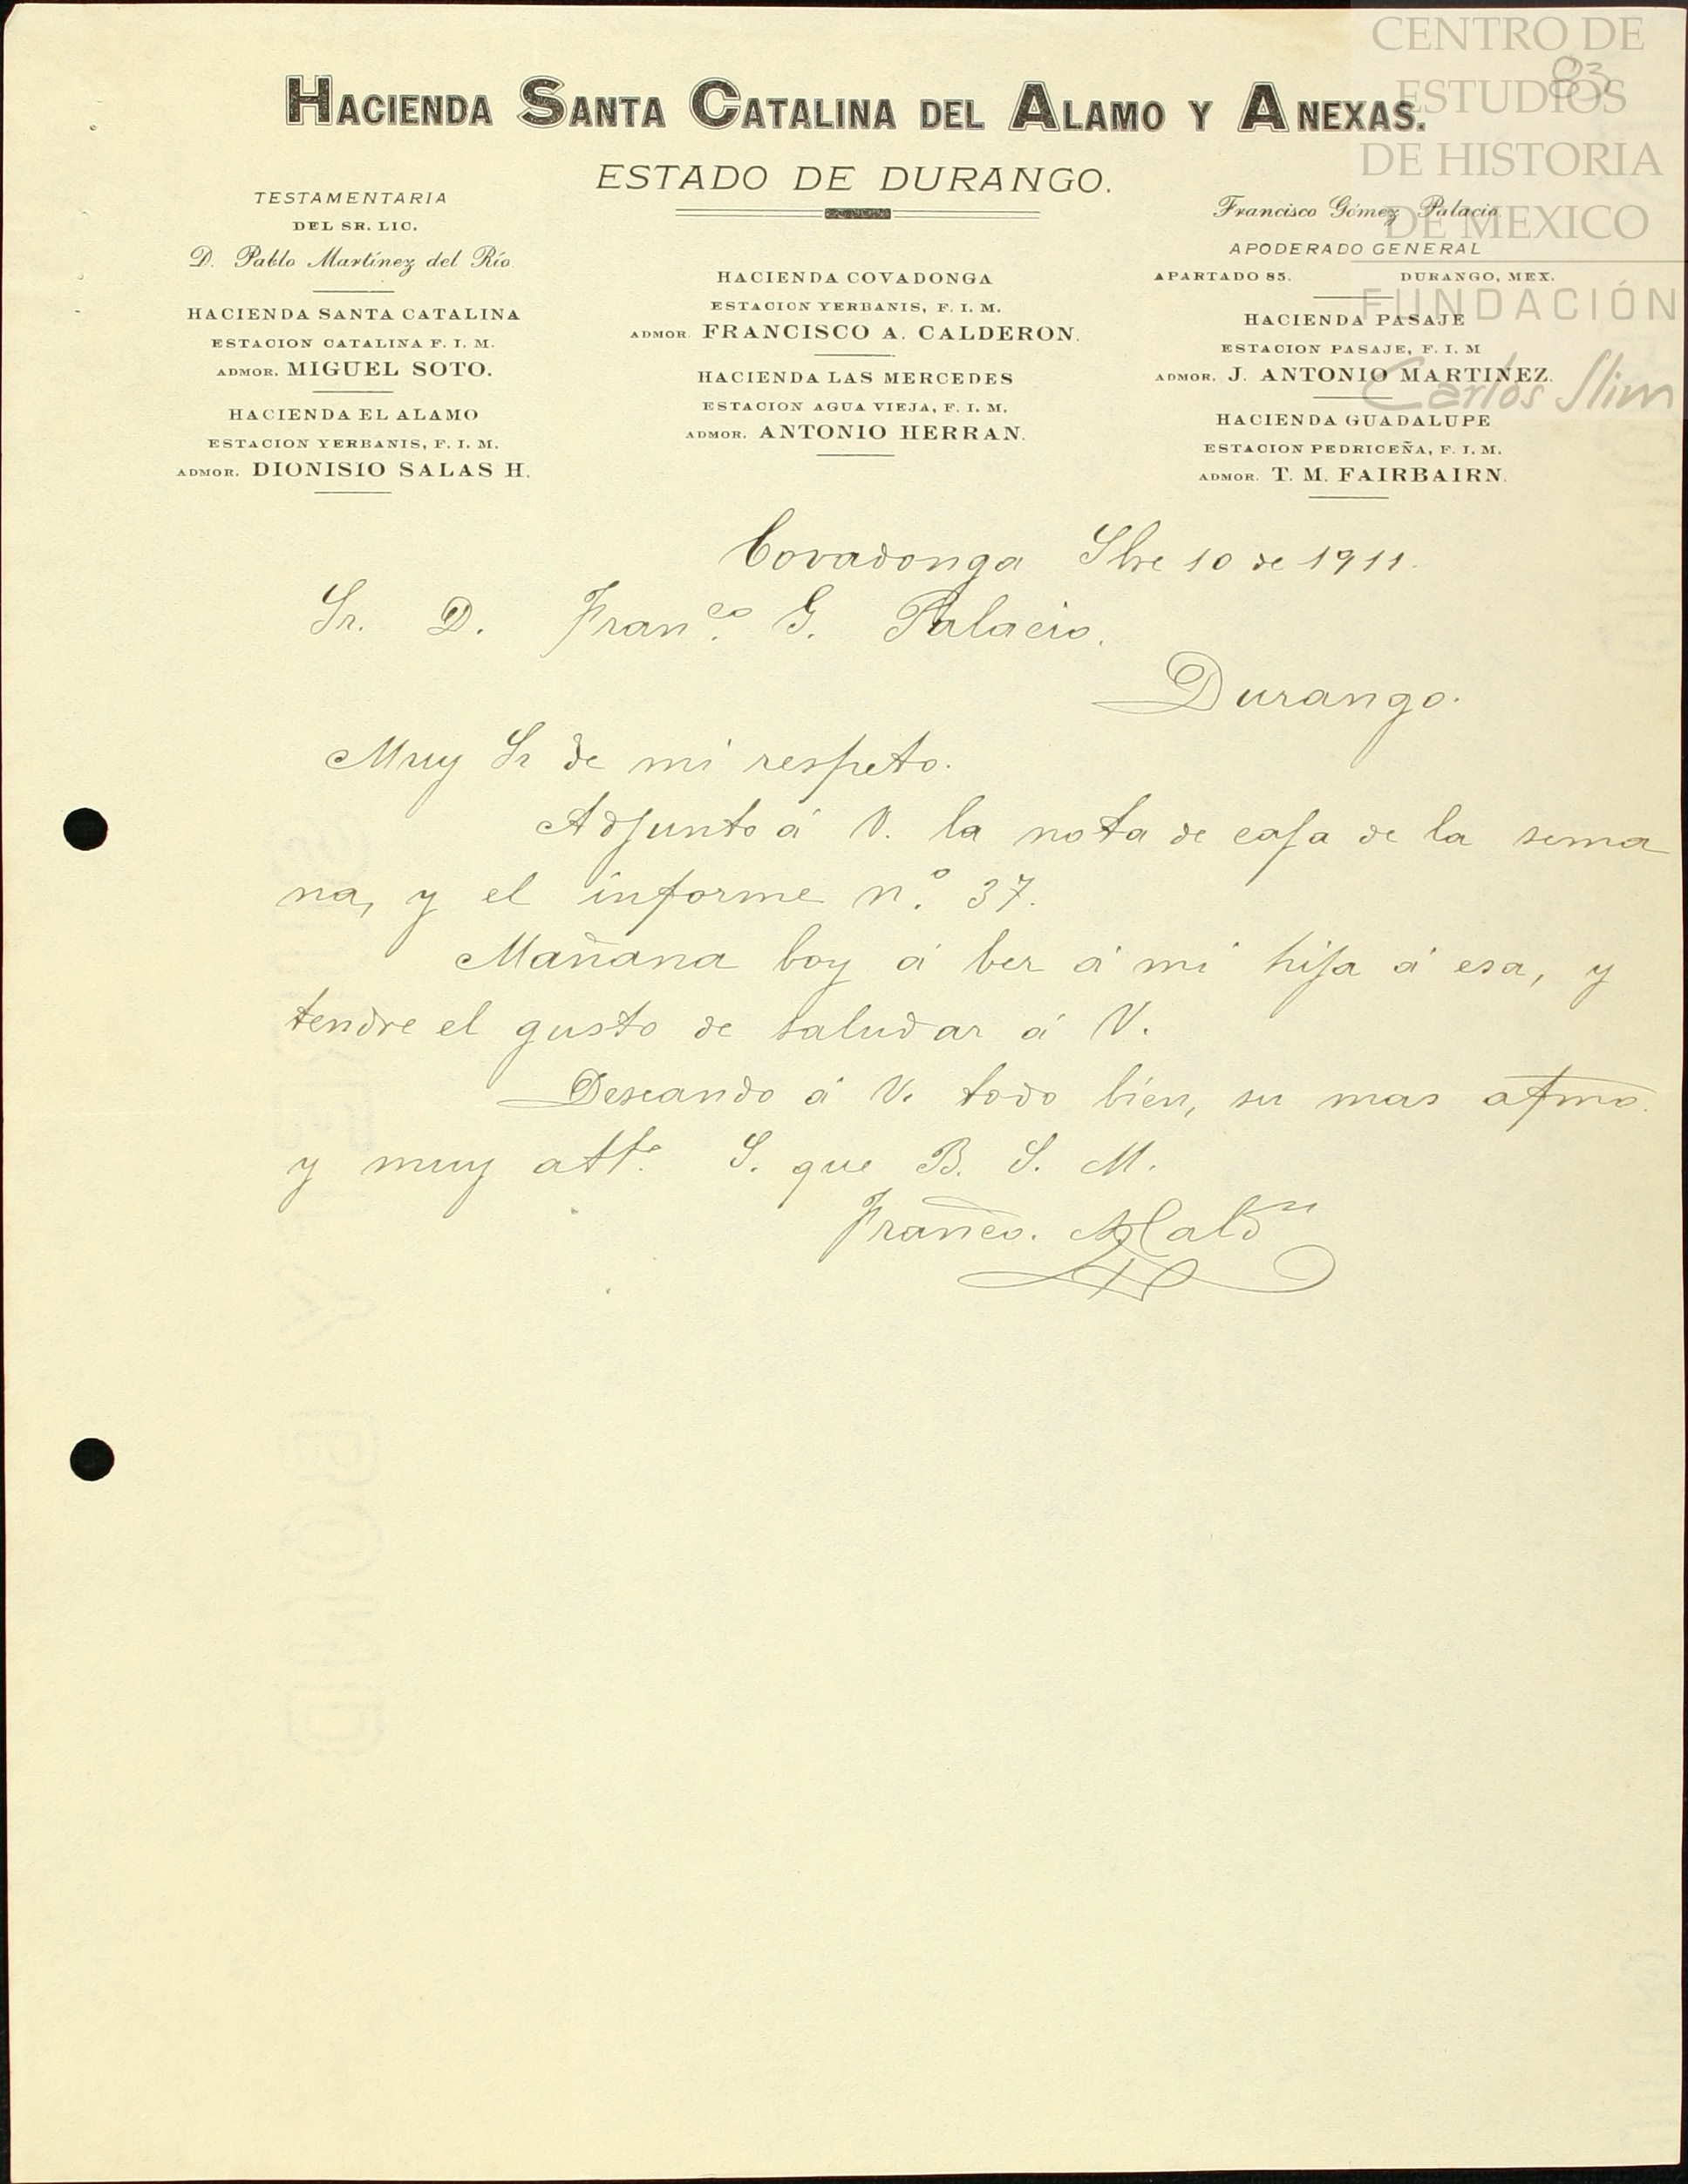 CENTRO DE
ESTUDIOS
DE HISTORIA
DE MEXICO
FUNDACIÓN
Carlos Slim
83
HACIENDA SANTA CATALINA DEL ALAMO Y ANEXAS.
ESTADO DE DURANGO.
TESTAMENTARIA
DEL SR. LIC.
D. Pablo Martínez del Río.
HACIENDA SANTA CATALINA
ESTACION CATALINA F. I. M.
ADMOR. MIGUEL SOTO.
HACIENDA EL ALAMO
ESTACION YERBANIS, F. I. M.
ADMOR. DIONISIO SALAS H.
HACIENDA COVADONGA
ESTACION YERBANIS, F. I. M.
ADMOR. FRANCISCO A. CALDERON.
HACIENDA LAS MERCEDES
ESTACION AGUA VIEJA, F. I. M.
ADMOR. ANTONIO HERRAN.
Francisco Gómez Palacio.
APODERADO GENERAL
APARTADO 85. DURANGO, MEX.
HACIENDA PASAJE
ESTACION PASAJE, F. I. M
ADMOR. J. ANTONIO MARTINEZ.
HACIENDA GUADALUPE
ESTACION PEDRICEÑA, F. I. M.
ADMOR. T. M. FAIRBAIRN.
Covadonga Sbre 10 de 1911.
Sr. D. Franco. G. Palacio.
Durango.
Muy Sr de mi respeto.
Adjunto á V. la nota de caja de la sema
na, y el informe n.º 37.
Mañana boy á ber á mi hija á esa, y
tendre el gusto de saludar á V.
Deseando á V. todo bien, su mas afmo.
y muy atto. S. que B. S. M.
Franco. A Caldn